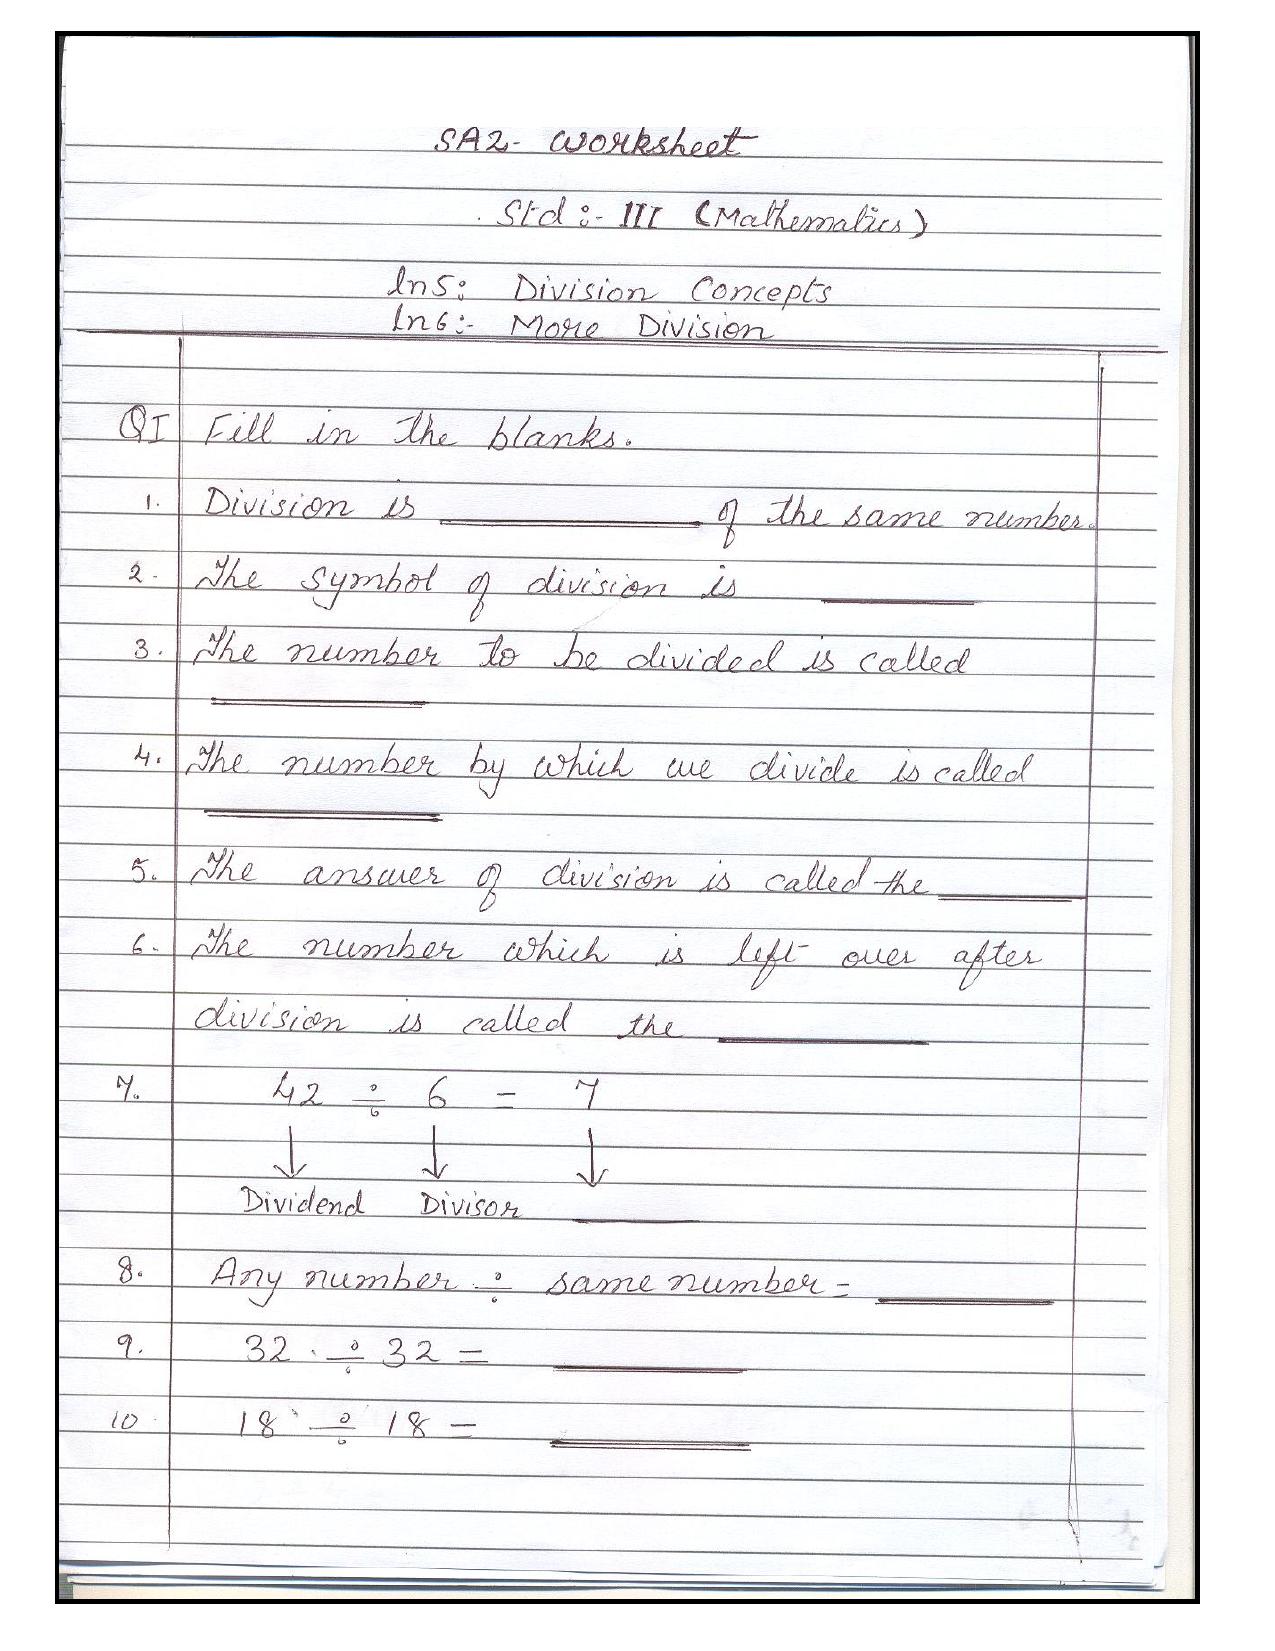 SA2- Worksheet
Std :- III (Mathematics)
ln5: Division Concepts
ln6:- More Division
QI Fill in the blanks.
1. Division is ________ of the same number.
2. The symbol of division is ________
3. The number to be divided is called
________
4. The number by which we divide is called
________
5. The answer of division is called the ________
6. The number which is left over after
division is called the ________
7. 42 ÷ 6 = 7
↓ ↓ ↓
Dividend Divisor ________
8. Any number ÷ same number = ________
9. 32 ÷ 32 = ________
10 18 ÷ 18 = ________